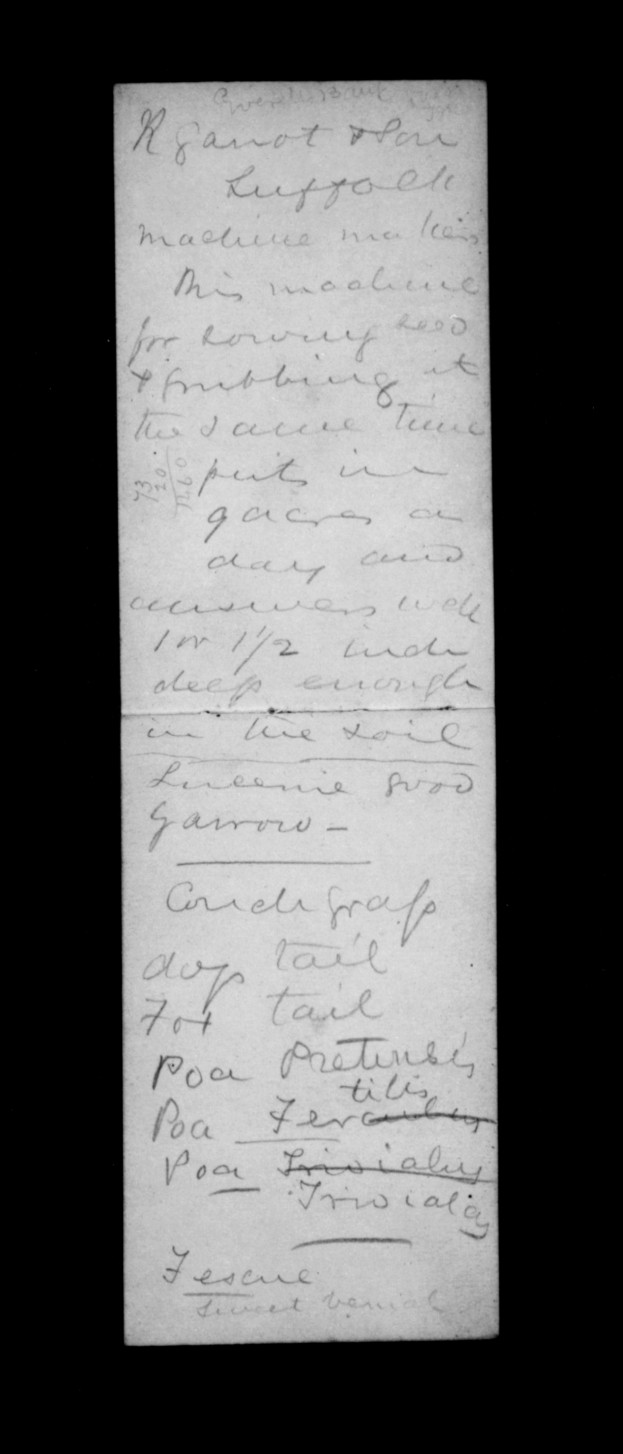 R Garrot & Son
Suffolk
machine makers
This machine
for sowing seed
& grubbing at
the same time
puts in
9 acres a
day and
answers well
1 or 1 1/2 inch
deep enough
in the soil
Lucerne good
Yarrow -
Couch grass
dogs tail
Fox tail
Poa Pretensis
tilis
Poa Fer
Poa Trivialus
Trivialas
Fescue
Sweet vernal
73
20
1460